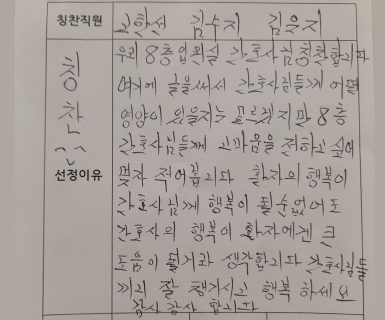 칭찬직원 고한선 김수지 김을지
칭찬^^
선정이유
우리 8층 입원실 간호사님 칭찬합니다
여기에 글을써서 간호사님들께 어떤
영양이 있을지는 모르겠지만 8층
간호사님들께 고마움을 전하고 싶어
몇자 적어봅니다 환자의 행복이
간호사님께 행복이 될순없어도
간호사의 행복이 환자에겐 큰
도움이 될거라 생각합니다 간호사님들
끼리 잘 챙기시고 행복 하세요
감사 감사 합니다